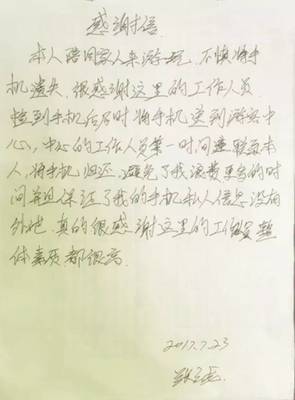 感谢信
本人陪同家人来游玩,不慎将手
机遗失,很感谢这里的工作人员
捡到手机后及时将手机送到游客中
心,中心的工作人员第一时间联系本
人,将手机归还,避免了我浪费更多的时
间并且保证了我的手机私人信息没有
外泄.真的很感谢这里的工作人员整
体素质都很高.
2017.7.23